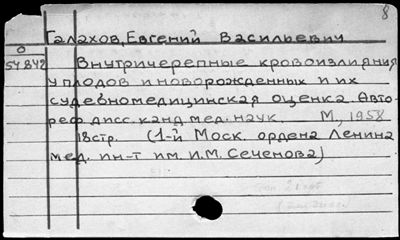 8
Галахов, Евгений Васильевич
О
54842
Внутричерепные кровоизлияния
у плодов и новорожденных и их
судебномедицинская оценка. Авто-
реф дисс. канд мед. наук. М., 1958
18стр. (1-й Моск. ордена Ленина
мед. ин-т им И.М. Сеченова)